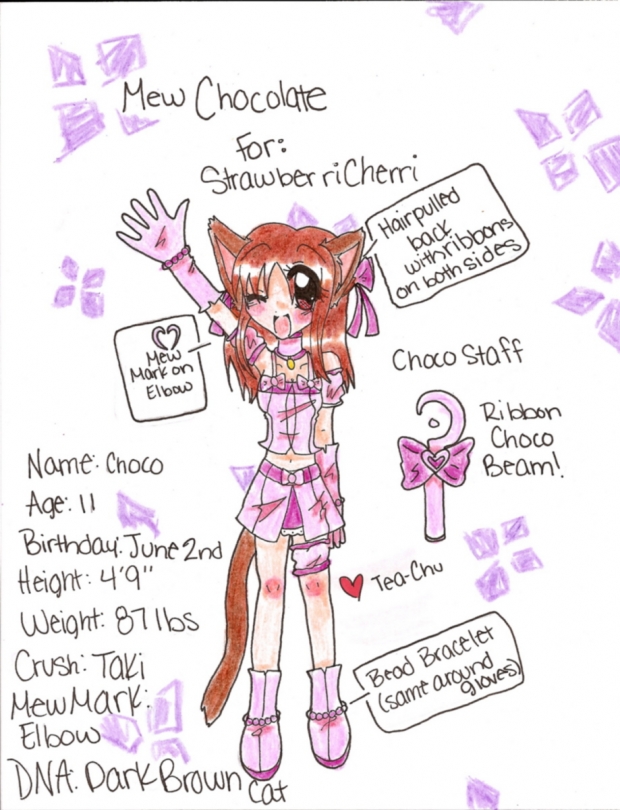 Mew Chocolate
For:
StrawberriCherri
Hair pulled
back
with ribbons
on both sides
Mew
Mark on
Elbow
Choco Staff
Ribbon
Choco
Beam!
Name: Choco
Age: 11
Birthday: June 2nd
Height: 4'9"
Weight: 87 lbs
Crush: Taki
Mew Mark:
Elbow
DNA: Dark Brown
Cat
Tea-Chu
Bead Bracelet
(same around
gloves)